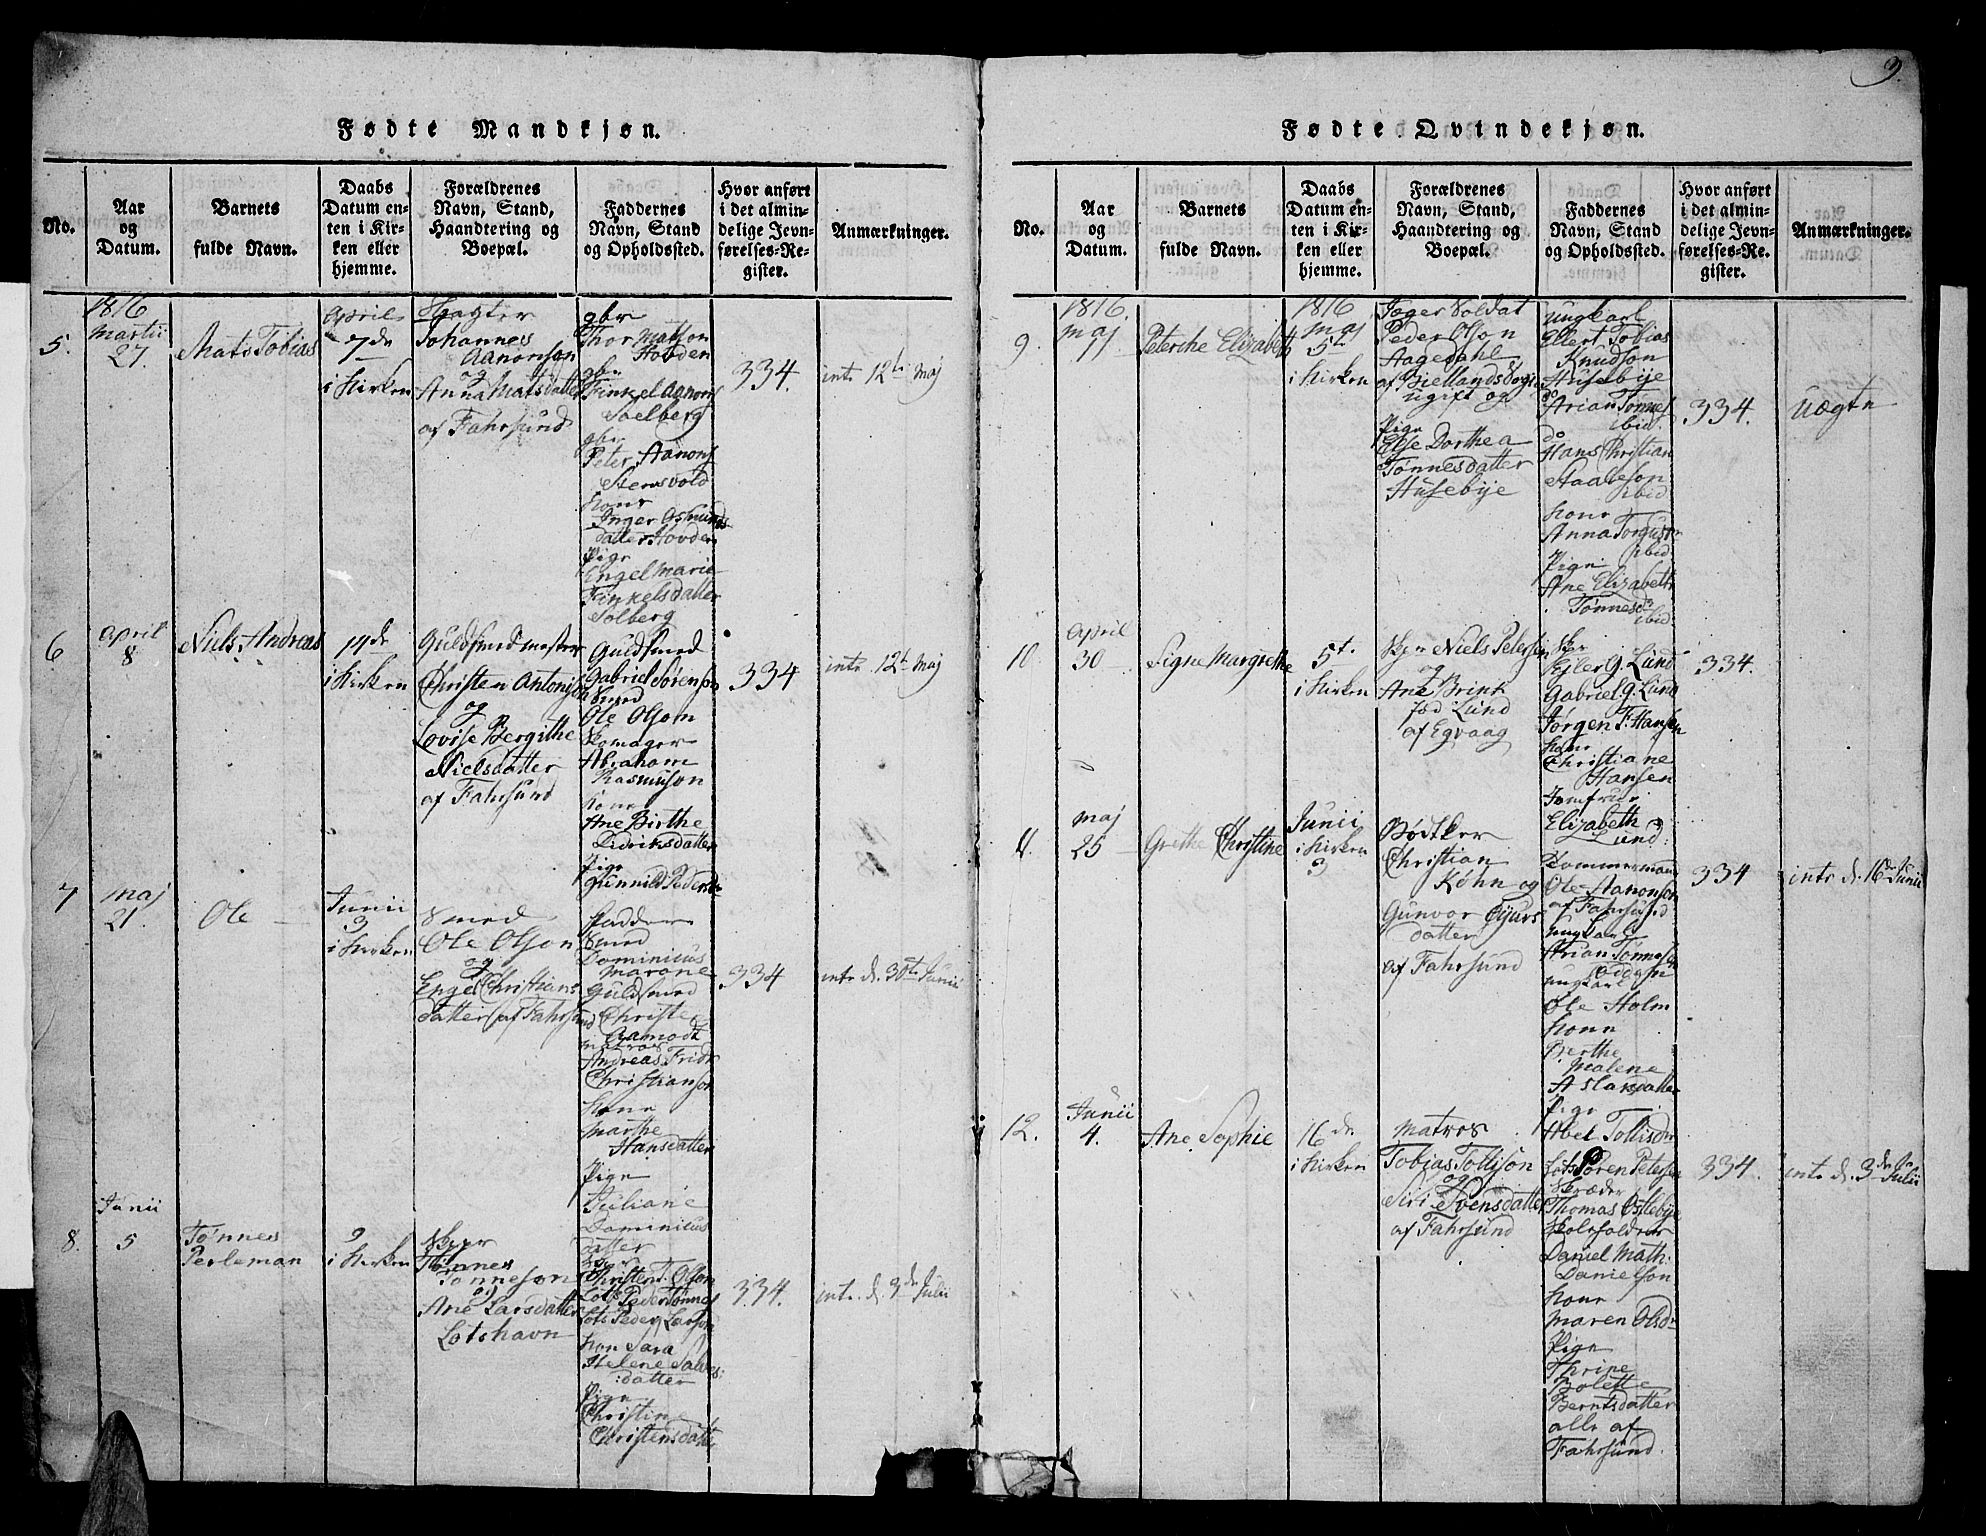 3.
Fødte Mandkjøn.
No.
Aar
og
Datum.
Barnets
fulde Navn.
Daabs
Datum en-
ten i Kir-
ken eller
hjemme.
Forældrenes
Navn, Stand,
Haandtering og
Boepæl.
Faddernes
Navn, Stand
og Opholdssted.
Hvor anført
i det almin-
delige Jevn-
førelses-Re-
gister.
Anmærkninger.
5.
1816
Martii
27.
Mats Tobias
April
7de
i Kirken
Johannes
Aanonson
og
Anna Matsdatter
af Fahrsund
gbr
Thor Matson
Hovden
gbr
Finkel Aanons
Soelberg
gbr
Peter Aanons
Stensvold
Kone
Inger Osmunds
datter Hovden
Pige
Engel Marie
Finkelsdatter
Solberg
334.
intr 12te Maj
6
April
8
Niels Andreas
14de
i Kirken
Guldsmedmester
Christen Antonison
og
Lovise Bergithe
Nielsdatter
af Fahrsund
Guldsmed
Gabriel Sørenson
Smed
Ole Olsom
Skomager
Abraham
Rasmuson
Kone
Ane Birthe
Didriksdatter
Pige
Gunnild Pedersdr
334
intr 12te Maj
7
Maj
21.
Ole
Junii
3
i Kirken
Smed
Ole Olson
og
Engel Christians
datter af Fahrsund
Fadder
Smed
Dominicus
Marone
Guldsmed
Christen
Aamodt
Matros
Andreas Fridr
Christianson
Kone
Marthe
Hansdatter
Pige
Juliane
Dominicus
datter
334
intr d. 30te Junii
8.
Junii
5
Tønnes
Perleman
9
i Kirken
Skpr
Tønnes
Tønneson
og
Ane Larsdatter
Lotshavn
Skpr
Christen T. Olson
Lots Peder Tønnes
Lots Peder Larson
Kon Sara
Helene Salves
datter
Pige
Christine
Christensdatter
334.
intr. d. 3de Julii
Fødte Qvindekjøn.
No.
Aar
og
Datum.
Barnets
fulde Navn.
Daabs
Datum en-
ten i Kir-
ken eller
hjemme.
Forældrenes
Navn, Stand,
Haandtering og
Boepæl.
Faddernes
Navn, Stand
og Opholdssted.
Hvor anført
i det almin-
delige Jevn-
førelses-Re-
gister.
Anmærkninger.
9.
1816.
Maj
1
Peterche Elizabeth
1816
Maj
5te
i Kirken
Jæger Soldat
Peder Olson
Aagedahl
af Biellands Sogn
ugift og
Pige
Else Dorthea
Tønnesdatter
Husebije
Ungkarl
Ellert Tobias
Knudson
Husebije
do
Arian Tønnes
ibid.
do
Hans Christian
Staaleson
ibid
Kone
Anna Torgusdr
ibid.
Pige
Ane Elizabeth
Tønnesdr
ibid.
334.
Uægte
10.
April
30
Signe Margrethe
5t.
i Kirken
Skpr Niels Petersen
og
Ane Brink
fød Lund
af Egvaag
Skpr
Ejler G. Lund
Gabriel G. Lund
Jørgen F. Hansen
Kone
Christiane
Hansen
Jomfrue
Elizabeth
Lund.
334.
11.
Maj
25
Grethe Christine
Junii
i Kirken
3
Bødtker
Christian
Køhn og
Gunvor Gjurs
datter
af Fahrsund
Tommermand
Ole Aanonson
af Fahrsund
ungkarl
Arian Tønneson
ungkarl
Ole Holm
Kone
Berthe
Malene
Aslaksdatter
Pige
Abel Tollisdr
334
intr d. 16de Junii
12.
Junii
4.
Ane Sophie
16de
i Kirken
Matros
Tobias Tollison
og
Siri Svensdatter
af Fahrsund
Lots Søren Petersen
Skræder
Thomas Ostebije
Skoleholder
Daniel Math.
Danielson
Kone
Maren Olsdr
Pige
Thrine
Bolette
Berntsdatter
alle af
Fahrsund.
334.
intr d. 3de Julii